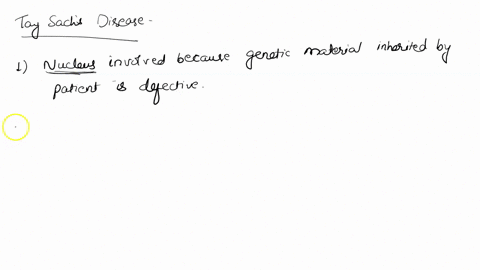 Tay Sach's Disease.
1) Nucleus involved because genetic material inherited by
patient is defective.